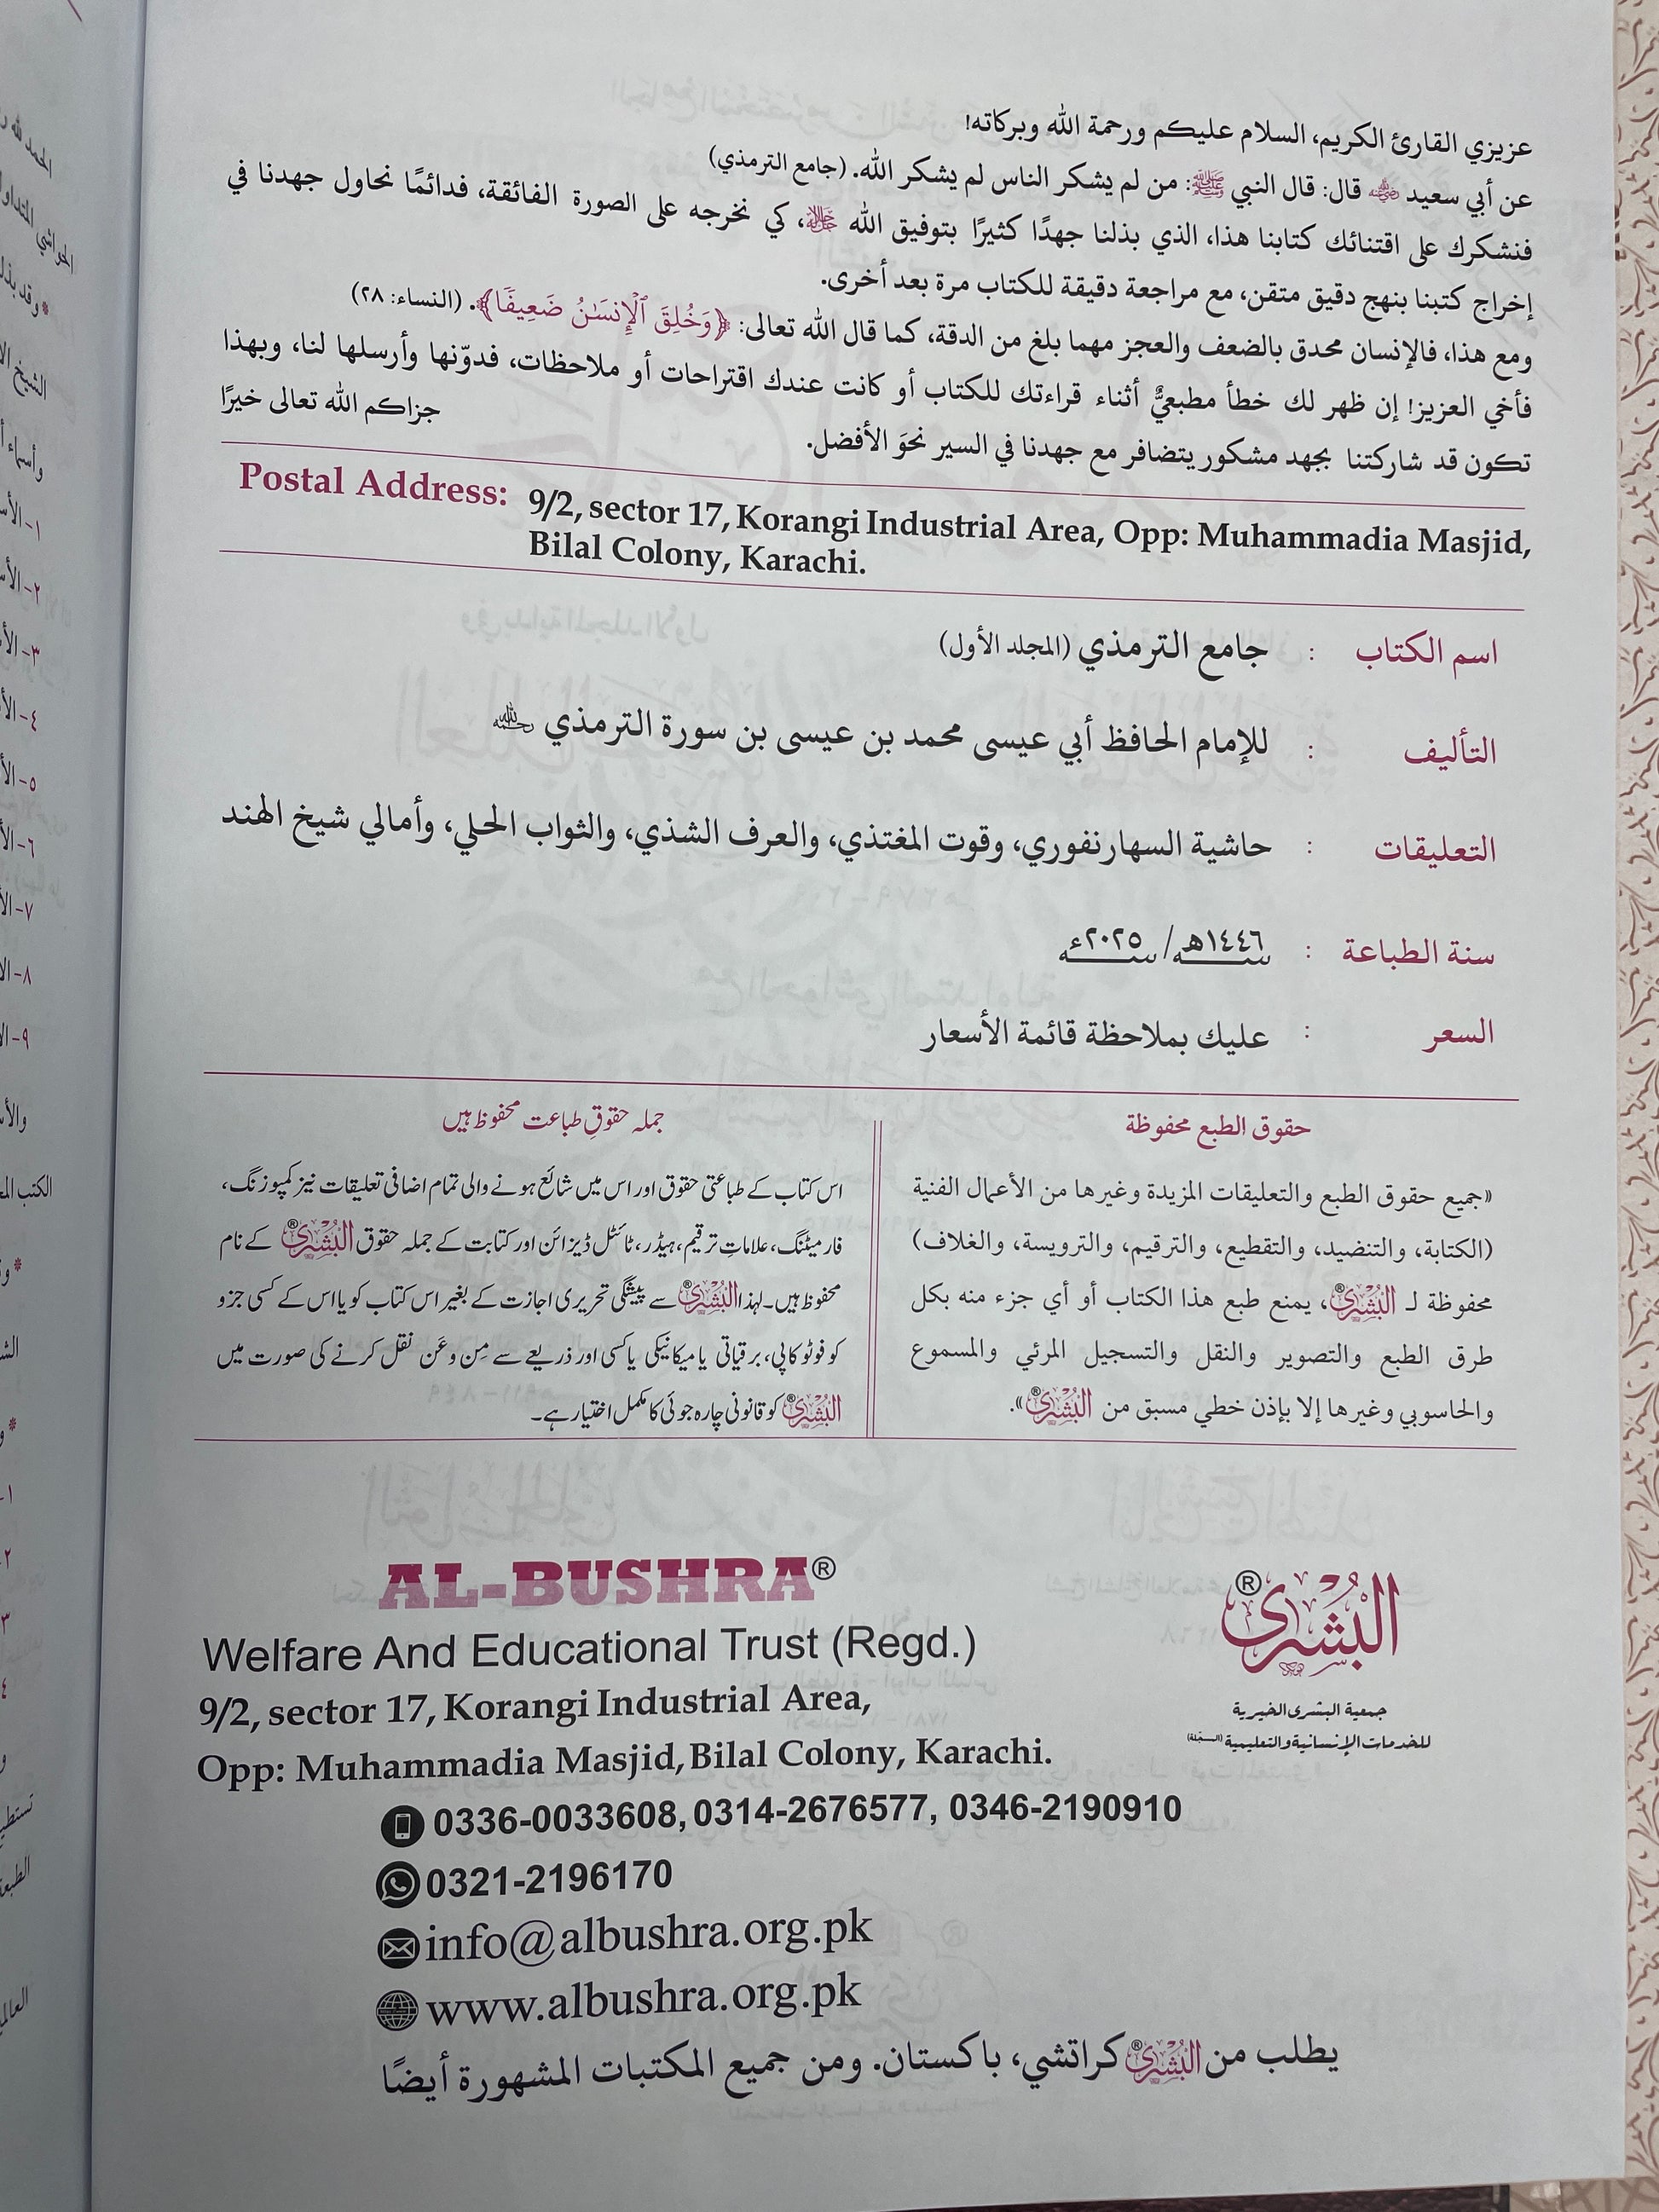 عزيزي القارئ الكريم، السلام عليكم ورحمة الله وبركاته!
عن أبي سعيد رضي الله عنه قال: قال النبي ﷺ: من لم يشكر الناس لم يشكر الله. (جامع الترمذي)
فنشكرك على اقتنائك كتابنا هذا، الذي بذلنا جهدًا كثيرًا بتوفيق الله ﷻ، كي نخرجه على الصورة الفائقة، فدائمًا نحاول جهدنا في
إخراج كتبنا بنهج دقيق متقن، مع مراجعة دقيقة للكتاب مرة بعد أخرى.
ومع هذا، فالإنسان محدق بالضعف والعجز مهما بلغ من الدقة، كما قال الله تعالى: ﴿وَخُلِقَ ٱلْإِنسَـٰنُ ضَعِيفًا﴾. (النساء: ٢٨)
فأخي العزيز! إن ظهر لك خطأ مطبعيٌّ أثناء قراءتك للكتاب أو كانت عندك اقتراحات أو ملاحظات، فدوّنها وأرسلها لنا، وبهذا
تكون قد شاركتنا بجهد مشكور يتضافر مع جهدنا في السير نحوَ الأفضل.
جزاكم الله تعالى خيرًا
Postal Address: 9/2, sector 17, Korangi Industrial Area, Opp: Muhammadia Masjid,
Bilal Colony, Karachi.
اسم الكتاب : جامع الترمذي (المجلد الأول)
التأليف : للإمام الحافظ أبي عيسى محمد بن عيسى بن سورة الترمذي رحمه الله
التعليقات : حاشية السهارنفوري، وقوت المغتذي، والعرف الشذي، والثواب الحلي، وأمالي شيخ الهند
سنة الطباعة : سنه ١٤٤٦هـ / سنه ٢٠٢٥ء
السعر : عليك بملاحظة قائمة الأسعار
حقوق الطبع محفوظة
«جميع حقوق الطبع والتعليقات المزيدة وغيرها من الأعمال الفنية
(الكتابة، والتنضيد، والتقطيع، والترقيم، والترويسة، والغلاف)
محفوظة لـ البُشْرىٰ®، يمنع طبع هذا الكتاب أو أي جزء منه بكل
طرق الطبع والتصوير والنقل والتسجيل المرئي والمسموع
والحاسوبي وغيرها إلا بإذن خطي مسبق من البُشْرىٰ®».
جملہ حقوقِ طباعت محفوظ ہیں
اس کتاب کے طباعتی حقوق اور اس میں شائع ہونے والی تمام اضافی تعلیقات نیز کمپوزنگ،
فارمیٹنگ، علاماتِ ترقیم، ہیڈر، ٹائٹل ڈیزائن اور کتابت کے جملہ حقوق البُشْرىٰ® کے نام
محفوظ ہیں۔ لہذا البُشْرىٰ® سے پیشگی تحریری اجازت کے بغیر اس کتاب کو یا اس کے کسی جزو
کو فوٹو کاپی، برقیاتی یا میکانیکی یا کسی اور ذریعے سے مِن وعَن نقل کرنے کی صورت میں
البُشْرىٰ® کو قانونی چارہ جوئی کا مکمل اختیار ہے۔
AL-BUSHRA®
Welfare And Educational Trust (Regd.)
9/2, sector 17, Korangi Industrial Area,
Opp: Muhammadia Masjid, Bilal Colony, Karachi.
البُشْرىٰ®
جمعية البشرى الخيرية
للخدمات الإنسانية والتعليمية (المسجّلة)
0336-0033608, 0314-2676577, 0346-2190910
0321-2196170
info@albushra.org.pk
www.albushra.org.pk
يطلب من البُشْرىٰ® كراتشي، باكستان. ومن جميع المكتبات المشهورة أيضًا